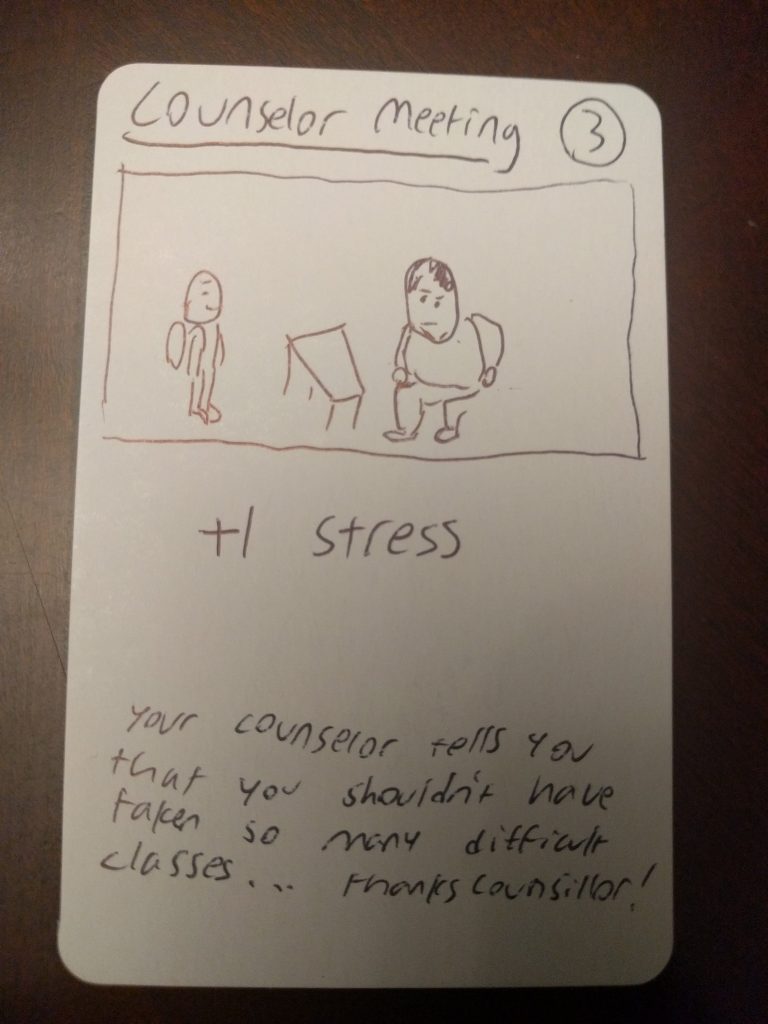 Counselor Meeting 3
+1 stress
Your counselor tells you
that you shouldn't have
taken so many difficult
classes... thanks counsillor!